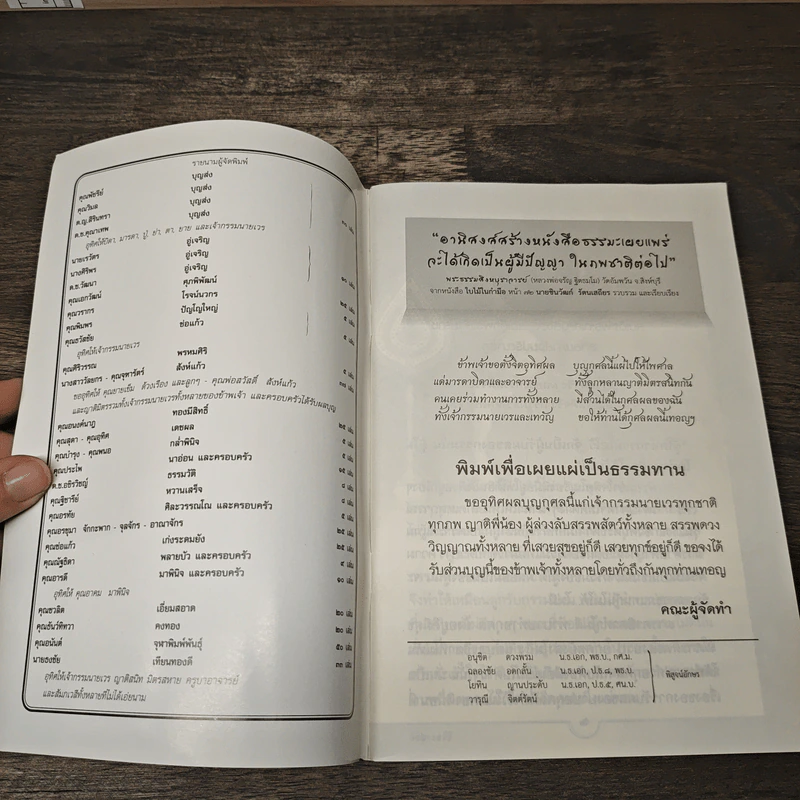 รายนามผู้จัดพิมพ์
คุณพัชรีย์ บุญส่ง
คุณวิมล บุญส่ง
ด.ญ.สิรินทรา บุญส่ง
ด.ช.คุณาเทพ บุญส่ง ๓๐ เล่ม
อุทิศให้บิดา, มารดา, ปู่, ย่า, ตา, ยาย และเจ้ากรรมนายเวร
นายเรวัตร อู่เจริญ
นางศิริพร อู่เจริญ
ด.ช.วัฒนา อู่เจริญ ๑๐ เล่ม
คุณเอกวัฒน์ ศุภพิพัฒน์ ๒๕ เล่ม
คุณวรากร โรจน์นวกร ๕ เล่ม
คุณพิมพร ปัญโญใหญ่ ๕ เล่ม
คุณธวัสชัย ช่อแก้ว
อุทิศให้เจ้ากรรมนายเวร
คุณศิริวรรณ พรหมศิริ ๕ เล่ม
นางสาววัลยกร - คุณจุฑารัตร์ สังห์แก้ว ๓๗ เล่ม
ขออุทิศให้ คุณยายเข้ม ด้วงเรือง และลูกๆ - คุณพ่อสวัสดิ์ สังห์แก้ว
และญาติมิตรรวมทั้งเจ้ากรรมนายเวรทั้งหลายของข้าพเจ้า และครอบครัวได้รับผลบุญ
คุณอนงค์นาฏ ทองมีสิทธิ์ ๒๕ เล่ม
คุณสุดา - คุณอุทิศ เดชผล ๕ เล่ม
คุณบำรุง - คุณพนอ กล่ำพินิจ ๕ เล่ม
คุณประไพ นาอ่อน และครอบครัว ๕ เล่ม
ด.ช.อธิรวิชญ์ ธรรมวัติ ๑๕ เล่ม
คุณฐิชารีย์ หวานเสร็จ ๘ เล่ม
คุณอรทัย ศิละวรรณโณ และครอบครัว ๘ เล่ม
คุณอรชุมา จักกะพาก - จุลจักร - อาณาจักร ๕ เล่ม
คุณช่อแก้ว เก่งระดมยิง ๒๕ เล่ม
คุณณัฐธิดา พลายบัว และครอบครัว ๔ เล่ม
คุณอารดี มาพินิจ และครอบครัว ๑๐ เล่ม
อุทิศให้ คุณอาคม มาพินิจ
คุณชวลิต เอี่ยมสอาด ๒๐ เล่ม
คุณธันว์ทิทวา คงทอง ๒๐ เล่ม
คุณอนันต์ จุฬาพิมพ์พันธุ์ ๕๐ เล่ม
นายธงชัย เทียนทองดี ๓๓ เล่ม
อุทิศให้เจ้ากรรมนายเวร ญาติสนิท มิตรสหาย ครูบาอาจารย์
และสัมภเวสีทั้งหลายที่ไม่ได้เอ่ยนาม
“อานิสงส์สร้างหนังสือธรรมะเผยแพร่
จะได้เกิดเป็นผู้มีปัญญา ในภพชาติต่อไป”
พระธรรมสิงหบุราจารย์ (หลวงพ่อจรัญ ฐิตธมฺโม) วัดอัมพวัน จ.สิงห์บุรี
จากหนังสือ ใบไม้ในกำมือ หน้า ๗๒ นายชินวัฒก์ รัตนเสถียร รวบรวม และเรียบเรียง
ข้าพเจ้าขอตั้งจิตอุทิศผล บุญกุศลนี้แผ่ไปให้ไพศาล
แด่มารดาบิดาและอาจารย์ ทั้งลูกหลานญาติมิตรสนิทกัน
คนเคยร่วมทำงานการทั้งหลาย มีส่วนได้ในกุศลผลของฉัน
ทั้งเจ้ากรรมนายเวรและเทวัญ ขอให้ท่านได้กุศลผลนี้เทอญฯ
พิมพ์เพื่อเผยแผ่เป็นธรรมทาน
ขออุทิศผลบุญกุศลนี้แก่เจ้ากรรมนายเวรทุกชาติ
ทุกภพ ญาติพี่น้อง ผู้ล่วงลับสรรพสัตว์ทั้งหลาย สรรพดวง
วิญญาณทั้งหลาย ที่เสวยสุขอยู่ก็ดี เสวยทุกข์อยู่ก็ดี ขอจงได้
รับส่วนบุญนี้ของข้าพเจ้าทั้งหลายโดยทั่วถึงกันทุกท่านเทอญ
คณะผู้จัดทำ
อนุชิต ดวงพรม น.ธ.เอก, พธ.บ., กศ.ม.
ฉลองชัย อดกลั้น น.ธ.เอก, ป.ธ.๘, พธ.บ.
โยทิน ญานประดับ น.ธ.เอก, ป.ธ.๕, ศน.บ.
วารุณี จิตต์รัตน์
พิสูจน์อักษร